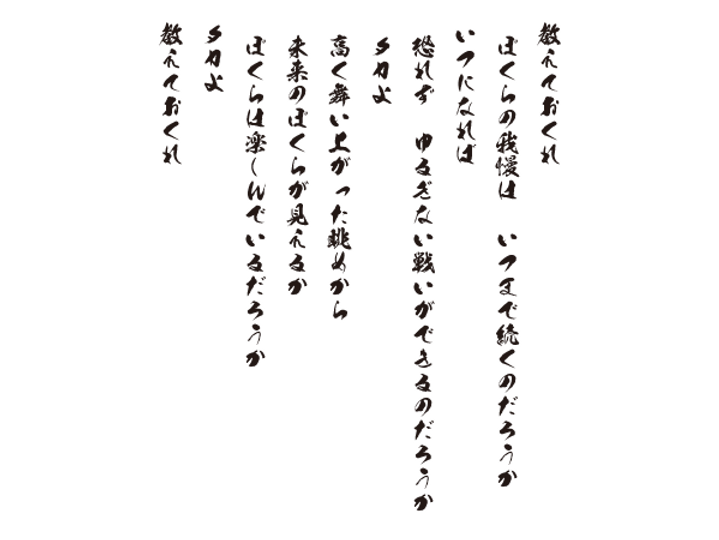 教えておくれ
ぼくらの我慢は　いつまで続くのだろうか
いつになれば
恐れず　ゆるぎない戦いができるのだろうか
タカよ
高く舞い上がった眺めから
未来のぼくらが見えるか
ぼくらは楽しんでいるだろうか
タカよ
教えておくれ